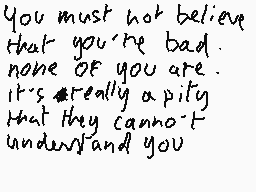 You must not believe
that you're bad.
none of you are.
it's really a pity
that they canno't
understand you